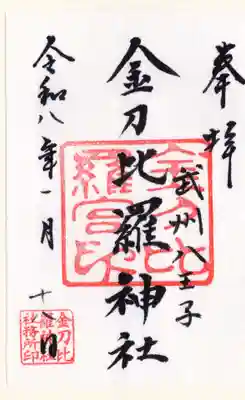 奉拝
武州八王子
金刀比羅神社
令和八年一月十八日
金刀比
羅宮印
金刀比
羅神社
社務所印